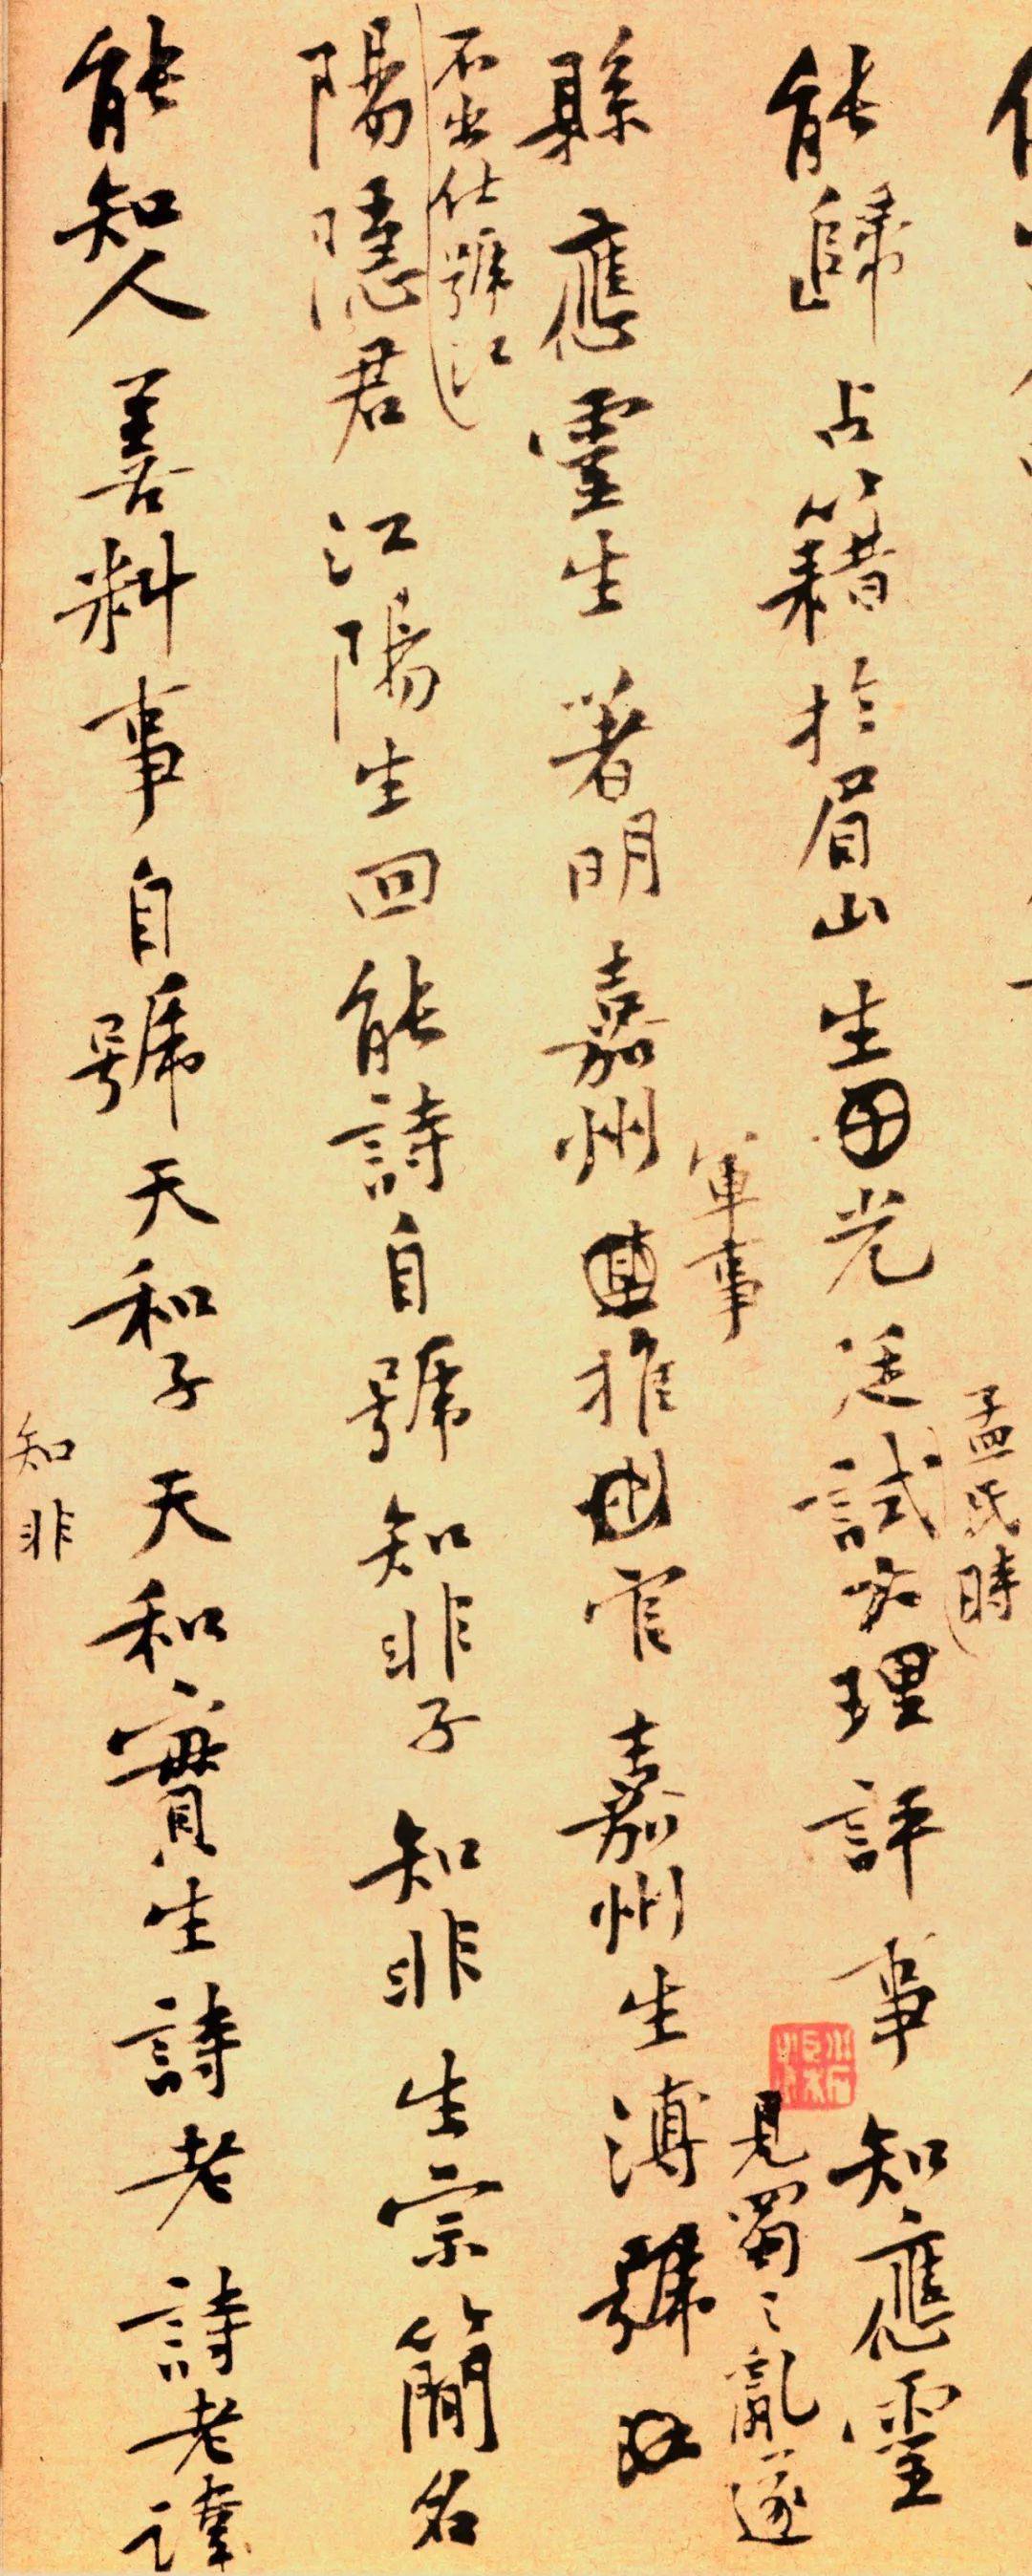 孟氏時
能歸占籍於眉山生光廷試大理評事知應靈
軍事
見蜀之亂遂
縣應靈生著明嘉州推官嘉州生溥號
不出仕號江
陽隱君江陽生回能詩自號知非子知非生宗簡名
能知人善料事自號天和子天和實生詩老詩老諱
知非